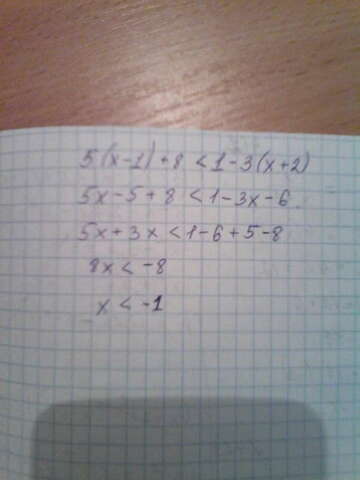 5(x-1)+8<1-3(x+2)
5x-5+8<1-3x-6
5x+3x<1-6+5-8
8x<-8
x<-1